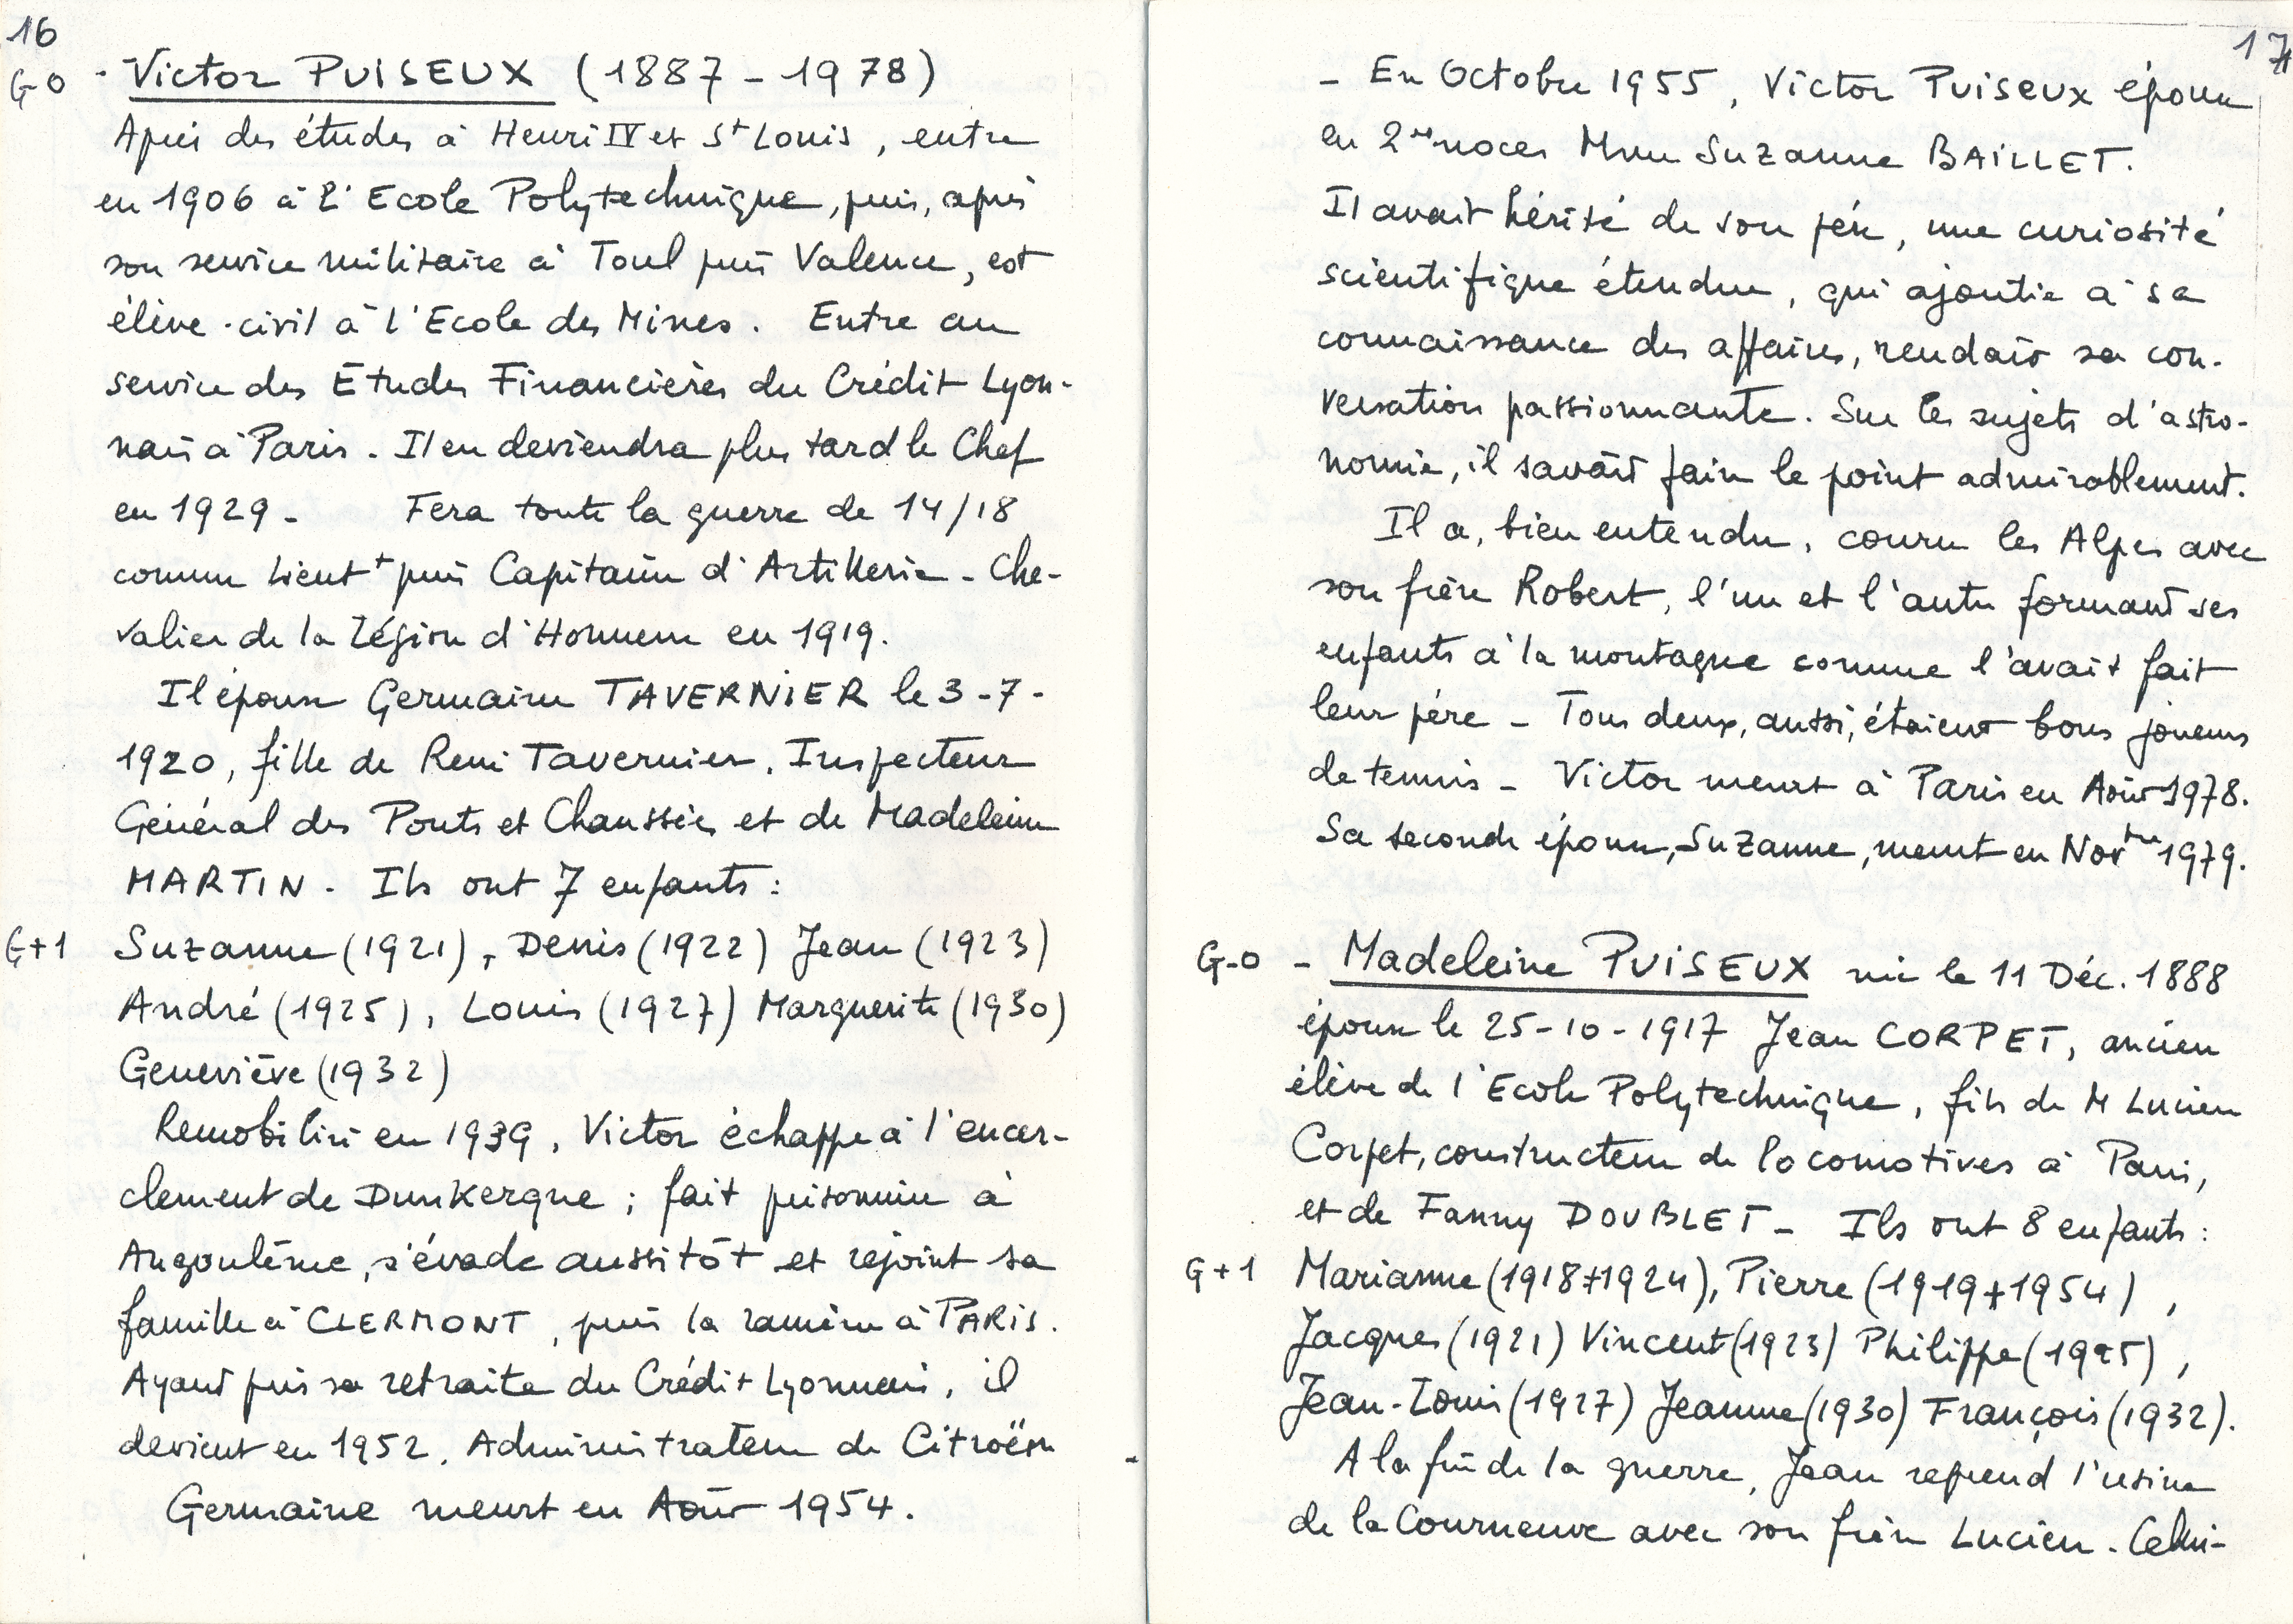 16
G-0 - Victor PUISEUX (1887 - 1978)
Après des études à Henri IV et St Louis, entre
en 1906 à l'Ecole Polytechnique, puis, après
son service militaire à Toul puis Valence, est
élève-civil à l'Ecole des Mines. Entre au
service des Etudes Financières du Crédit Lyon-
nais à Paris. Il en deviendra plus tard le Chef
en 1929 - Fera toute la guerre de 14/18
comme Lieutt puis Capitaine d'Artillerie - Che-
valier de la Légion d'Honneur en 1919.
Il épouse Germaine TAVERNIER le 3-7-
1920, fille de René Tavernier, Inspecteur
Général des Ponts et Chaussées et de Madeleine
MARTIN. Ils ont 7 enfants :
G+1 Suzanne (1921), Denis (1922) Jean (1923)
André (1925), Louis (1927) Marguerite (1930)
Geneviève (1932)
Remobilisé en 1939, Victor échappe à l'encer-
clement de Dunkerque ; fait prisonnier à
Angoulême, s'évade aussitôt et rejoint sa
famille à CLERMONT, puis la ramène à PARIS.
Ayant pris sa retraite du Crédit Lyonnais, il
devient en 1952, Administrateur de Citroën
Germaine meurt en Août 1954.
17
- En Octobre 1955, Victor Puiseux épouse
en 2es noces Mme Suzanne BAILLET.
Il avait hérité de son père, une curiosité
scientifique étendue, qui ajoutée à sa
connaissance des affaires, rendait sa con-
versation passionnante. Sur les sujets d'astro-
nomie, il savait faire le point admirablement.
Il a, bien entendu, couru les Alpes avec
son frère Robert, l'un et l'autre formant ses
enfants à la montagne comme l'avait fait
leur père - Tous deux, aussi, étaient bons joueurs
de tennis - Victor meurt à Paris en Août 1978.
Sa seconde épouse, Suzanne, meurt en Novbre 1979.
G-0 - Madeleine PUISEUX née le 11 Déc. 1888
épouse le 25-10-1917 Jean CORPET, ancien
élève de l'Ecole Polytechnique, fils de M Lucien
Corpet, constructeur de locomotives à Paris,
et de Fanny DOUBLET - Ils ont 8 enfants :
G+1 Marianne (1918+1924), Pierre (1919+1954),
Jacques (1921) Vincent (1923) Philippe (1925),
Jean-Louis (1927) Jeanne (1930) François (1932).
A la fin de la guerre, Jean reprend l'usine
de la Courneuve avec son frère Lucien. Celui-